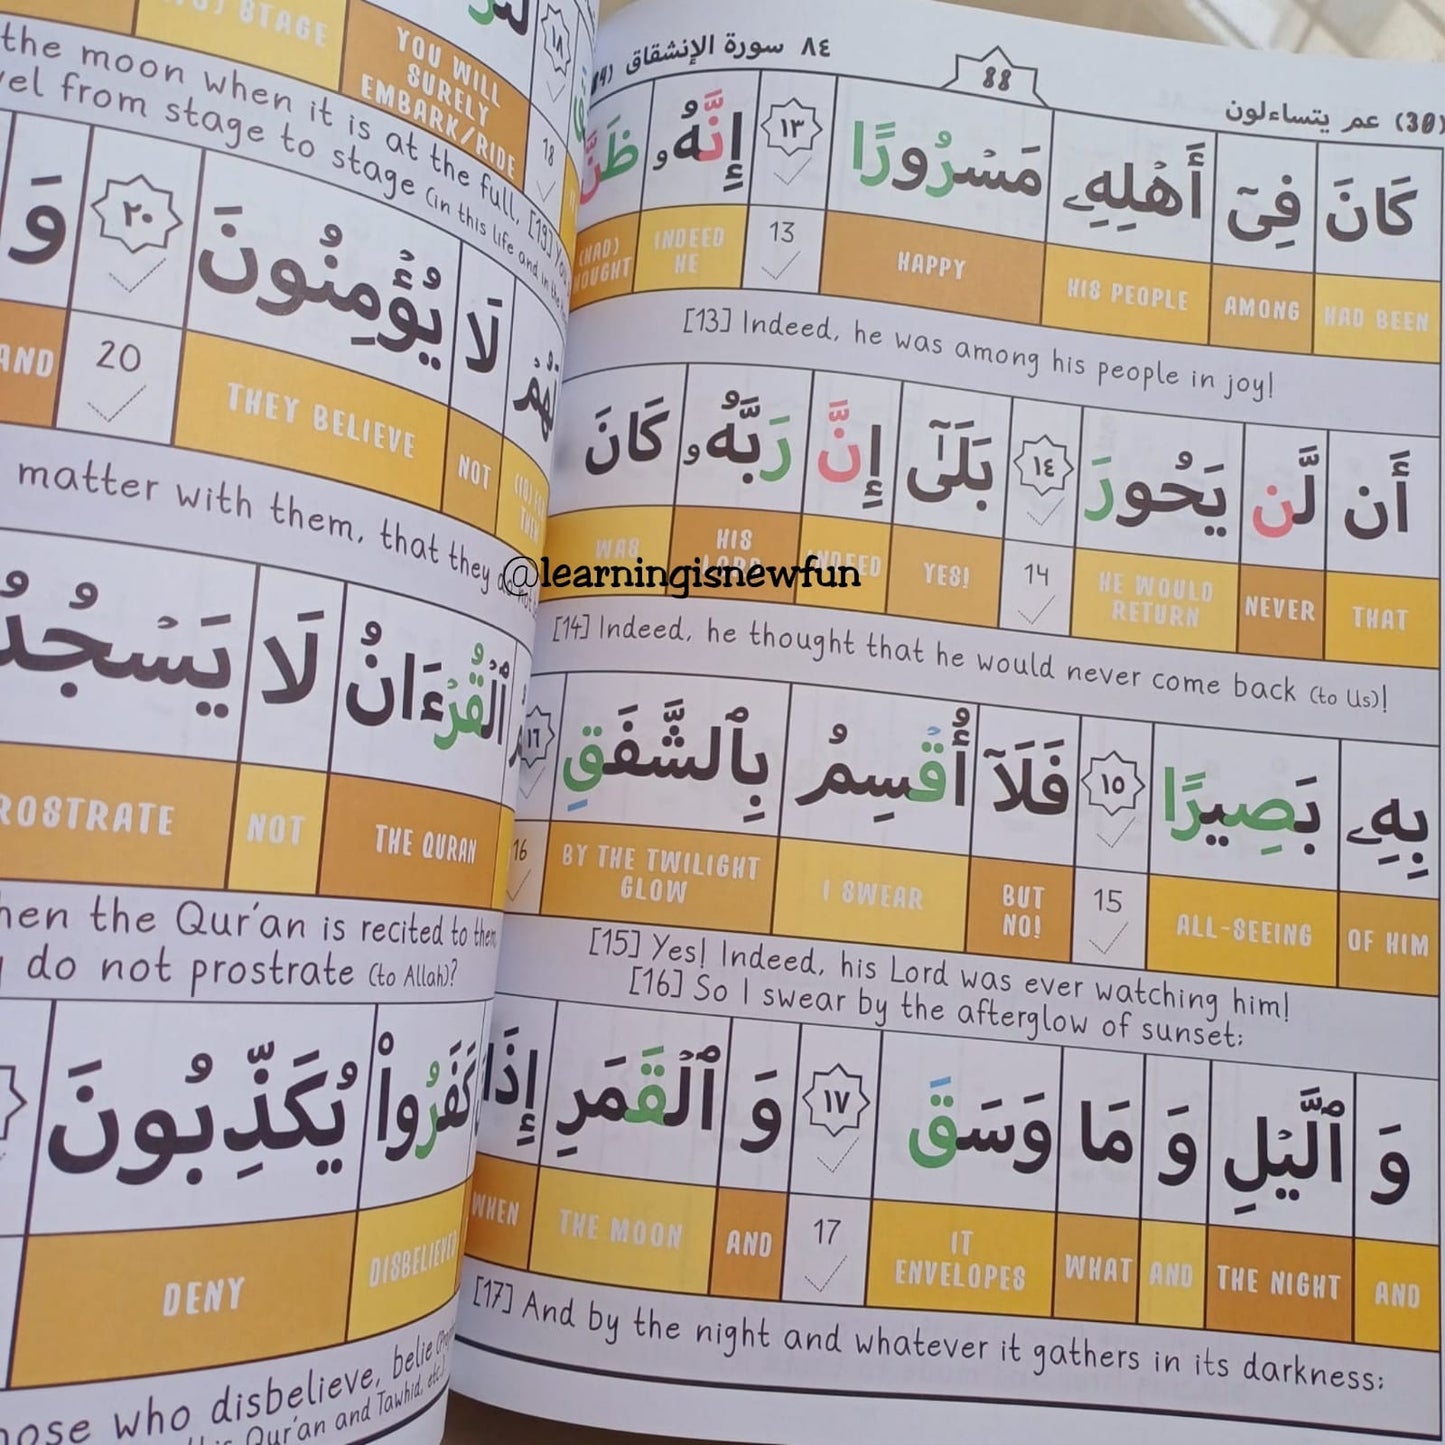 (30) عم يتساءلون
88
٨٤ سورة الإنشقاق
كَانَ فِىٓ أَهْلِهِۦ مَسْرُورًا ١٣ إِنَّهُۥ ظَنَّ
HAD BEEN AMONG HIS PEOPLE HAPPY 13 INDEED HE (HAD)
[13] Indeed, he was among his people in joy!
أَن لَّن يَحُورَ ١٤ بَلَىٰٓ إِنَّ رَبَّهُۥ كَانَ
THAT NEVER HE WOULD RETURN 14 YES! INDEED HIS WAS
@learningisnewfun
[14] Indeed, he thought that he would never come back (to Us)!
بِهِۦ بَصِيرًا ١٥ فَلَآ أُقْسِمُ بِٱلشَّفَقِ ١٦
OF HIM ALL-SEEING 15 BUT NO! I SWEAR BY THE TWILIGHT GLOW 16
[15] Yes! Indeed, his Lord was ever watching him!
[16] So I swear by the afterglow of sunset;
وَ ٱلَّيْلِ وَ مَا وَسَقَ ١٧ وَ ٱلْقَمَرِ إِذَا
AND THE NIGHT AND WHAT IT ENVELOPES 17 AND THE MOON WHEN
[17] And by the night and whatever it gathers in its darkness;
١٨
STAGE YOU WILL SURELY EMBARK/RIDE 18
the moon when it is at the full, [19] You
from stage to stage (in this life and in the
لَا يُؤْمِنُونَ ٢٠ وَ
NOT THEY BELIEVE 20 AND
matter with them, that they
ٱلْقُرْءَانُ لَا
THE QURAN NOT
the Qur'an is recited to them
do not prostrate (to Allah)?
كَفَرُوا۟ يُكَذِّبُونَ
DISBELIEVED DENY
who disbelieve,
Qur'an and Tawhid, etc.)